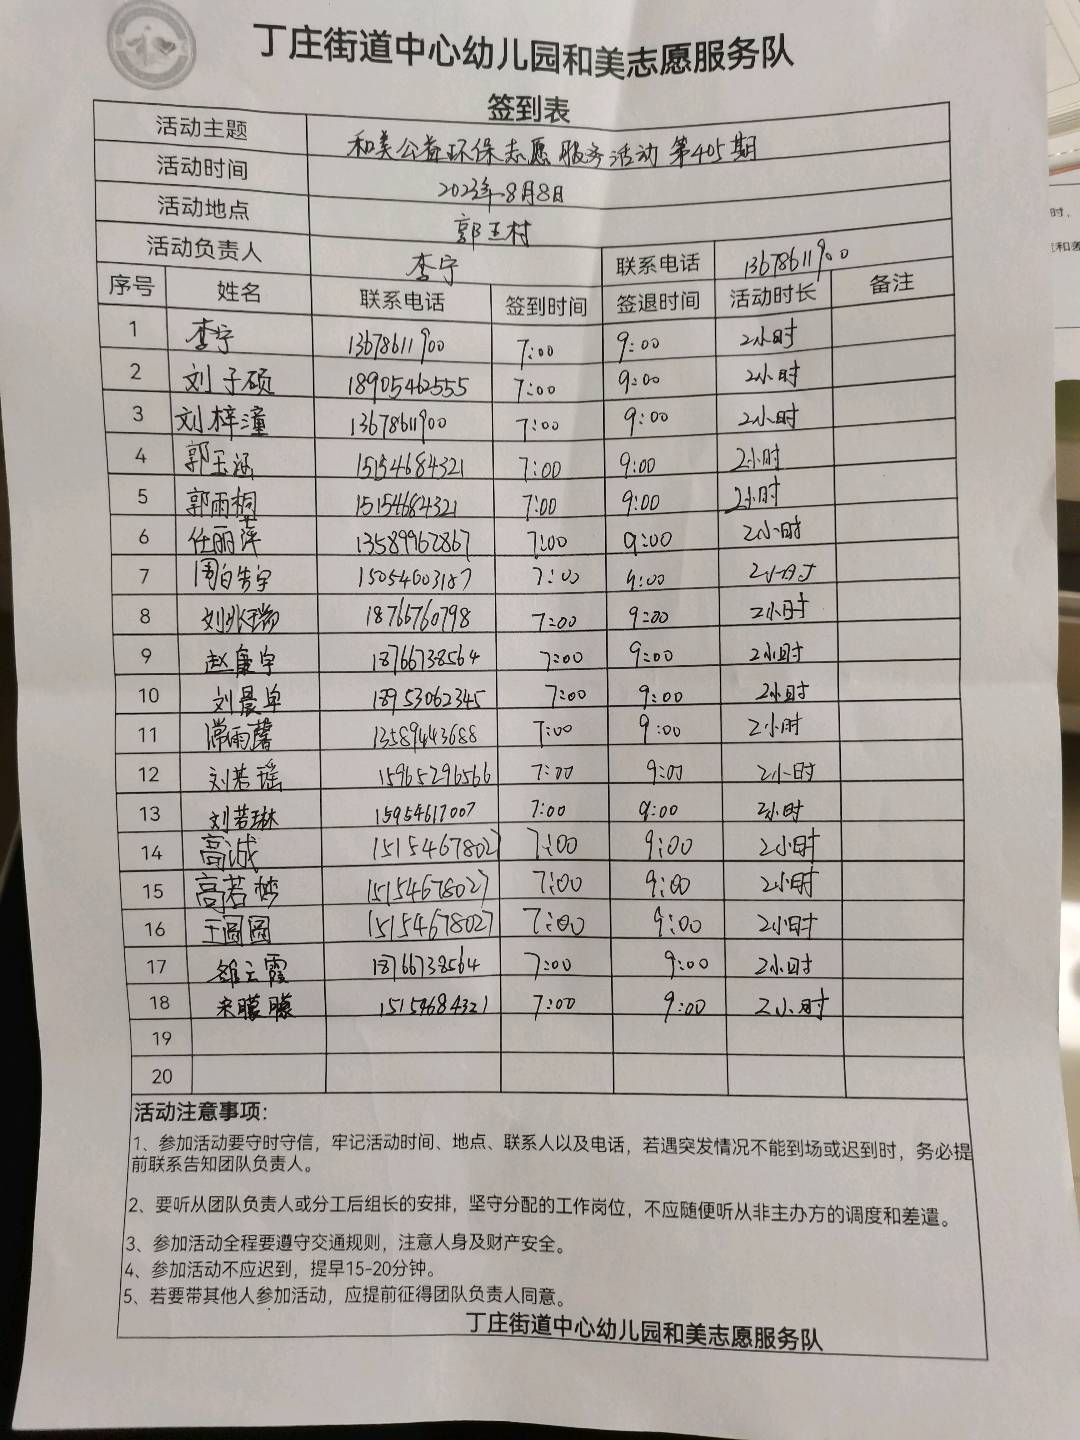 丁庄街道中心幼儿园和美志愿服务队
签到表
活动主题 和美公益环保志愿服务活动第405期
活动时间 2023年8月8日
活动地点 郭王村
活动负责人 李宁 联系电话 13678611900
序号 姓名 联系电话 签到时间 签退时间 活动时长 备注
1 李宁 13678611900 7:00 9:00 2小时
2 刘子硕 18905462555 7:00 9:00 2小时
3 刘梓潼 13678611900 7:00 9:00 2小时
4 郭玉涵 15154684321 7:00 9:00 2小时
5 郭雨桐 15154684321 7:00 9:00 2小时
6 任丽萍 13589962867 7:00 9:00 2小时
7 15054603187 7:00 9:00 2小时
8 18766760798 7:00 9:00 2小时
9 赵康宇 18766738564 7:00 9:00 2小时
10 刘晨卓 18953062345 7:00 9:00 2小时
11 常雨馨 13589443688 7:00 9:00 2小时
12 刘若瑶 15965296566 7:00 9:00 2小时
13 刘若琳 15954617007 7:00 9:00 2小时
14 高诚 15154678027 7:00 9:00 2小时
15 高若梦 15154678027 7:00 9:00 2小时
16 王圆圆 15154678027 7:00 9:00 2小时
17 云霞 18766738564 7:00 9:00 2小时
18 宋朦朦 15154684321 7:00 9:00 2小时
19
20
活动注意事项：
1、参加活动要守时守信，牢记活动时间、地点、联系人以及电话，若遇突发情况不能到场或迟到时，务必提
前联系告知团队负责人。
2、要听从团队负责人或分工后组长的安排，坚守分配的工作岗位，不应随便听从非主办方的调度和差遣。
3、参加活动全程要遵守交通规则，注意人身及财产安全。
4、参加活动不应迟到，提早15-20分钟。
5、若要带其他人参加活动，应提前征得团队负责人同意。
丁庄街道中心幼儿园和美志愿服务队